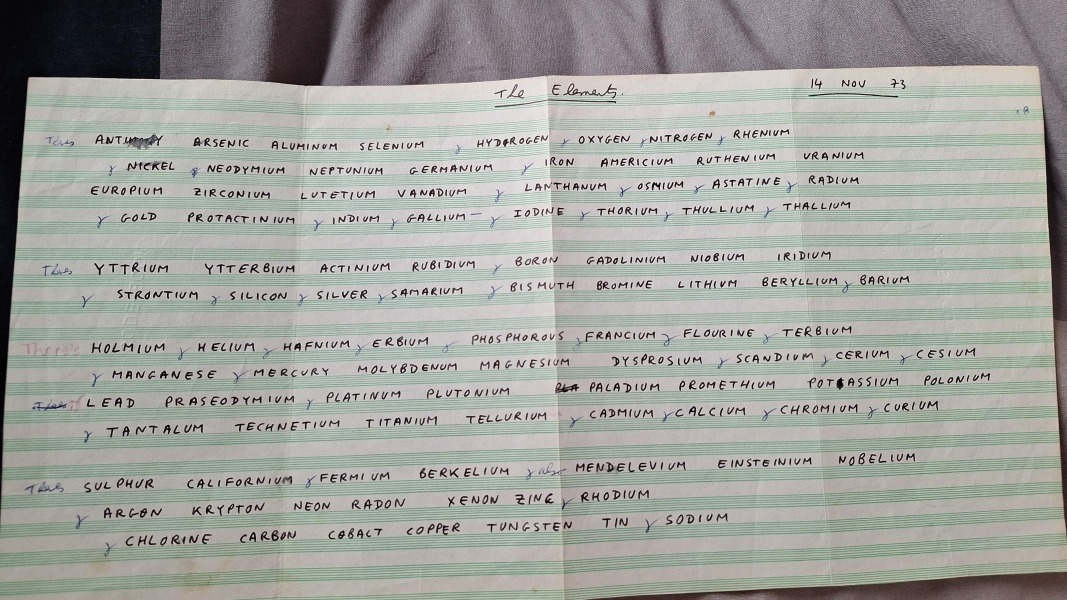 The Elements. 14 NOV 73
There's ANTIMONY ARSENIC ALUMINUM SELENIUM & HYDROGEN & OXYGEN & NITROGEN & RHENIUM
& NICKEL & NEODYMIUM NEPTUNIUM GERMANIUM & IRON AMERICIUM RUTHENIUM URANIUM
EUROPIUM ZIRCONIUM LUTETIUM VANADIUM & LANTHANUM & OSMIUM & ASTATINE & RADIUM
& GOLD PROTACTINIUM & INDIUM & GALLIUM — & IODINE & THORIUM & THULLIUM & THALLIUM
There's YTTRIUM YTTERBIUM ACTINIUM RUBIDIUM & BORON GADOLINIUM NIOBIUM IRIDIUM
& STRONTIUM & SILICON & SILVER & SAMARIUM & BISMUTH BROMINE LITHIUM BERYLLIUM & BARIUM
There's HOLMIUM & HELIUM & HAFNIUM & ERBIUM & PHOSPHOROUS & FRANCIUM & FLOURINE & TERBIUM
& MANGANESE & MERCURY MOLYBDENUM MAGNESIUM DYSPROSIUM & SCANDIUM & CERIUM & CESIUM
LEAD PRASEODYMIUM & PLATINUM PLUTONIUM PALADIUM PROMETHIUM POTASSIUM POLONIUM
& TANTALUM TECHNETIUM TITANIUM TELLURIUM & CADMIUM & CALCIUM & CHROMIUM & CURIUM
There's SULPHUR CALIFORNIUM & FERMIUM BERKELIUM & also MENDELEVIUM EINSTEINIUM NOBELIUM
& ARGON KRYPTON NEON RADON XENON ZINC & RHODIUM
& CHLORINE CARBON COBALT COPPER TUNGSTEN TIN & SODIUM